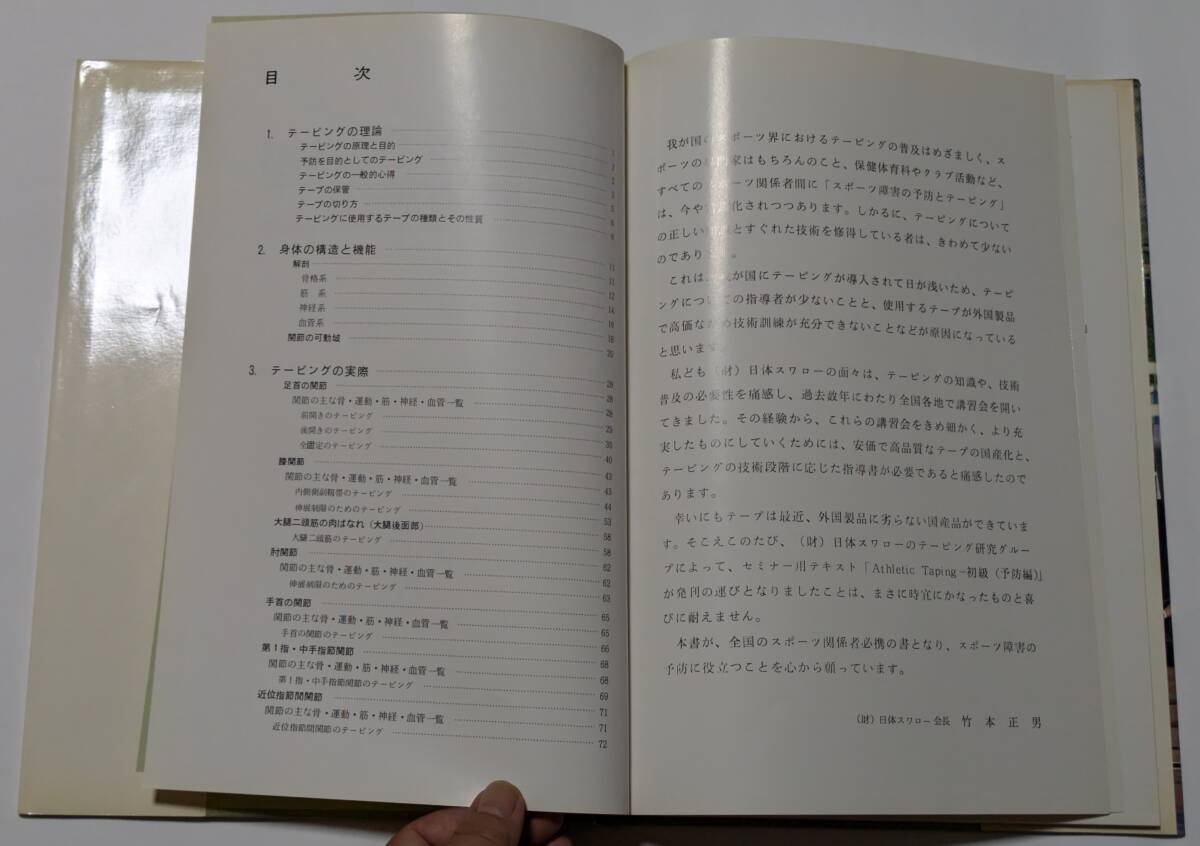 目次
1. テーピングの理論 1
テーピングの原理と目的 1
予防を目的としてのテーピング 2
テーピングの一般的心得 3
テープの保管 5
テープの切り方 6
テーピングに使用するテープの種類とその性質 6
2. 身体の構造と機能 11
解剖 11
骨格系 12
筋 系 14
神経系 16
血管系 18
関節の可動域 20
3. テーピングの実際 28
足首の関節 28
関節の主な骨・運動・筋・神経・血管一覧 28
前開きのテーピング 29
後開きのテーピング 30
全固定のテーピング 40
膝関節 43
関節の主な骨・運動・筋・神経・血管一覧 43
内側側副靱帯のテーピング 44
伸展制限のためのテーピング 53
大腿二頭筋の肉ばなれ(大腿後面部) 58
大腿二頭筋のテーピング 58
肘関節 62
関節の主な骨・運動・筋・神経・血管一覧 62
伸展制限のためのテーピング 63
手首の関節 65
関節の主な骨・運動・筋・神経・血管一覧 65
手首の関節のテーピング 66
第1指・中手指節関節 68
関節の主な骨・運動・筋・神経・血管一覧 68
第1指・中手指節関節のテーピング 69
近位指節間関節 71
関節の主な骨・運動・筋・神経・血管一覧 71
近位指節間関節のテーピング 72
我が国のスポーツ界におけるテーピングの普及はめざましく、ス
ポーツの 家はもちろんのこと、保健体育科やクラブ活動など、
すべての スポーツ関係者間に「スポーツ障害の予防とテーピング」
は、今や 化されつつあります。しかるに、テーピングについて
の正しい とすぐれた技術を修得している者は、きわめて少ない
のであります。
これは、我が国にテーピングが導入されて日が浅いため、テーピ
ングについての指導者が少ないことと、使用するテープが外国製品
で高価なため技術訓練が充分できないことなどが原因になっている
と思います。
私ども(財)日体スワローの面々は、テーピングの知識や、技術
普及の必要性を痛感し、過去数年にわたり全国各地で講習会を開い
てきました。その経験から、これらの講習会をきめ細かく、より充
実したものにしていくためには、安価で高品質なテープの国産化と、
テーピングの技術段階に応じた指導書が必要であると痛感したので
あります。
幸いにもテープは最近、外国製品に劣らない国産品ができていま
す。そこえこのたび、(財)日体スワローのテーピング研究グルー
プによって、セミナー用テキスト「Athletic Taping−初級(予防編)」
が発刊の運びとなりましたことは、まさに時宜にかなったものと喜
びに耐えません。
本書が、全国のスポーツ関係者必携の書となり、スポーツ障害の
予防に役立つことを心から願っています。
(財)日体スワロー会長 竹本正男